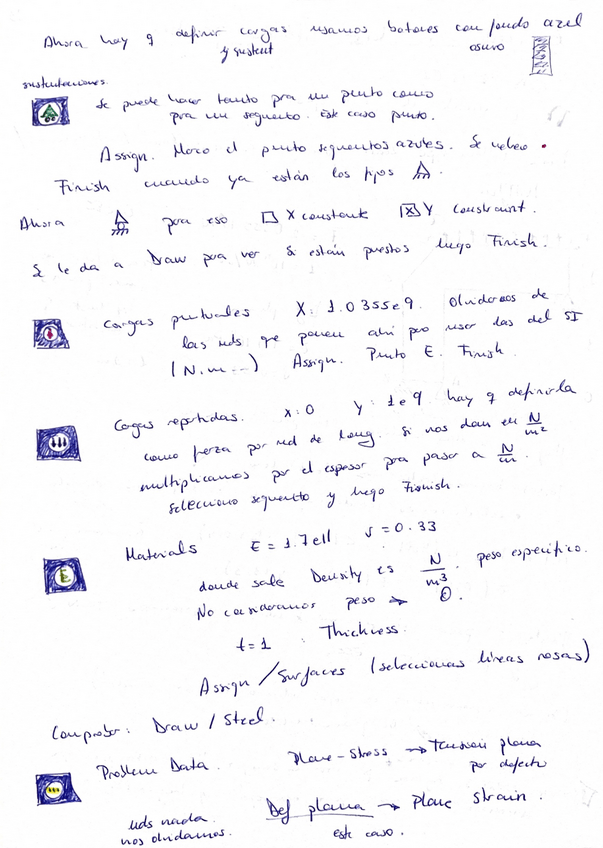 Ahora hay q definir cargas usamos botones con fondo azul
y sustent oscuro
sustentaciones.
Se puede hacer tanto pra un punto como
pra un segmento. Este caso punto.
Assign. Marco el punto segmentos azules. Se vuelve
Finish cuando ya están los fijos
Ahora para eso X constraint Y constraint.
Se le da a Draw pra ver si están puestos luego Finish.
Cargas puntuales X: 1.0355e9. Olvidarnos de
las uds que ponen ahí pro usar las del SI
(N.m...) Assign. Punto E. Finish.
Cargas repartidas. x:0 y: 1e9 hay q definirla
como fuerza por ud de long. Si nos dan en N/m²
multiplicamos por el espesor pra pasar a N/m.
selecciono segmento y luego Finish.
Materials E = 1.7e11 ν = 0.33
donde sale Density es N/m³. peso específico.
No consideramos peso → 0.
t=1 : Thickness.
Assign / Surfaces (seleccionas líneas rosas)
Comprobar: Draw / Steel.
Problem Data. Plane-Stress → Tensión plana
por defecto
Def plana → Plane Strain.
uds nada.
nos olvidamos. este caso.